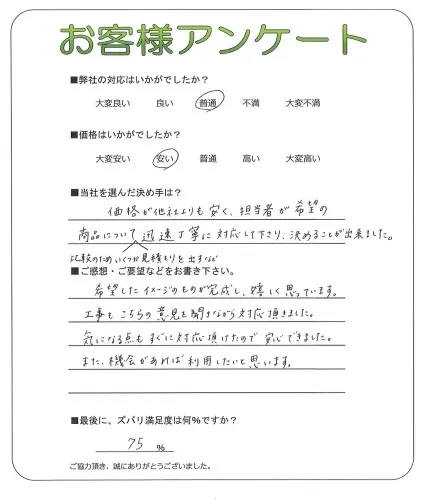 お客様アンケート
■弊社の対応はいかがでしたか？
大変良い 良い 普通 不満 大変不満
■価格はいかがでしたか？
大変安い 安い 普通 高い 大変高い
■当社を選んだ決め手は？
価格が他社よりも安く、担当者が希望の
商品について迅速丁寧に対応して下さり、決めることが出来ました。
比較のためいくつか見積もりを出すなど
■ご感想・ご要望などをお書き下さい。
希望したイメージのものが完成し、嬉しく思っています。
工事もこちらの意見を聞きながら対応頂きました。
気になる点もすぐに対応頂けたので安心できました。
また、機会があれば利用したいと思います。
■最後に、ズバリ満足度は何％ですか？
75 ％
ご協力頂き、誠にありがとうございました。